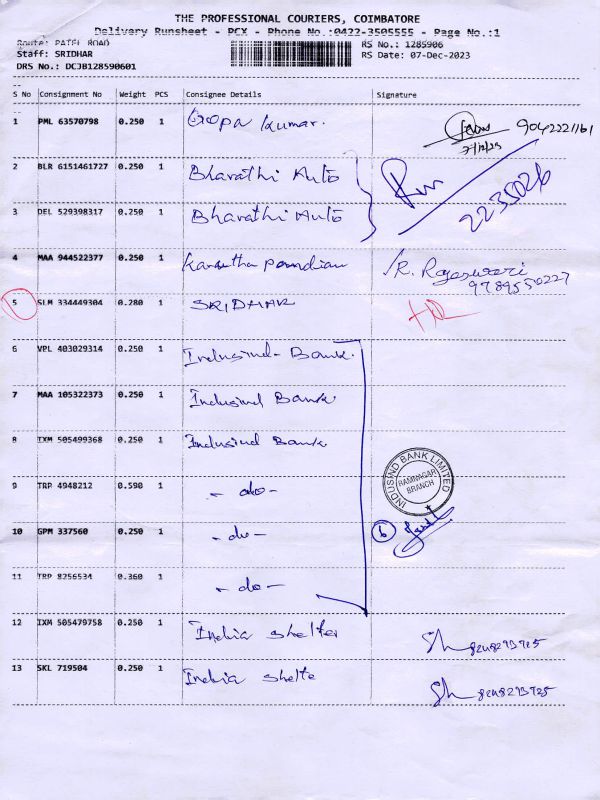 THE PROFESSIONAL COURIERS, COIMBATORE
Delivery Runsheet - PCX - Phone No.:0422-3505555 - Page No.:1
Route: PATEL ROAD
RS No.: 1285906
Staff: SRIDHAR
RS Date: 07-Dec-2023
DRS No.: DCJB128590601
S No Consignment No Weight PCS Consignee Details Signature
1 PML 63570798 0.250 1 Gopa kumar. 9042221161
7/12/23
2 BLR 6151461727 0.250 1 Bharathi Auto
3 DEL 529398317 0.250 1 Bharathi Auto 2235026
4 MAA 944522377 0.250 1 pandian R. Rajeswari
9789550227
5 SLM 334449304 0.280 1 SRIDHAR
6 VPL 403029314 0.250 1 Indusind - Bank.
7 MAA 105322373 0.250 1 Indusind Bank
8 IXM 505499368 0.250 1 Indusind Bank
INDUSIND BANK LIMITED
RAMNAGAR
BRANCH
9 TRP 4948212 0.590 1 - do -
10 GPM 337560 0.250 1 - do - 6
11 TRP 8256534 0.360 1 - do -
12 IXM 505479758 0.250 1 India shelter Sh 8248293725
13 SKL 719504 0.250 1 India shelte Sh 8248293725